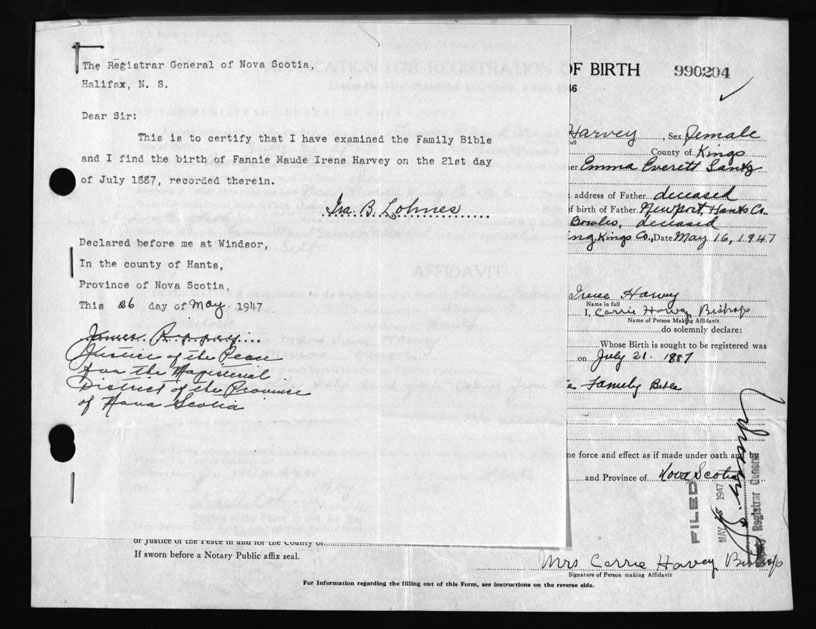 The Registrar General of Nova Scotia,
Halifax, N. S.
Dear Sir:
This is to certify that I have examined the Family Bible
and I find the birth of Fannie Maude Irene Harvey on the 21st day
of July 1887, recorded therein.
Ira. B. Lohnes
Declared before me at Windsor,
In the county of Hants,
Province of Nova Scotia,
This 26 day of May 1947
James
Justice of the Peace
for the Magisterial
District of the Province
of Nova Scotia
OF BIRTH 990204
46
Harvey, Sex Female
County of Kings
Emma Everett
address of Father deceased
of birth of Father Newport, Hants Co.
Bowles, deceased
Kings Co., Date May 16, 1947
Irene Harvey
Name in full
I, Carrie Harvey Bishop
Name of Person Making Affidavit
do solemnly declare:
Whose Birth is sought to be registered was
on July 21. 1887
Family Bible
force and effect as if made under oath and
and Province of Nova Scotia
FILED
MAY 1947
Deputy Registrar General
or Justice of the Peace in and for the County of
If sworn before a Notary Public affix seal.
Mrs Carrie Harvey Bishop
Signature of Person making Affidavit
For Information regarding the filling out of this Form, see instructions on the reverse side.